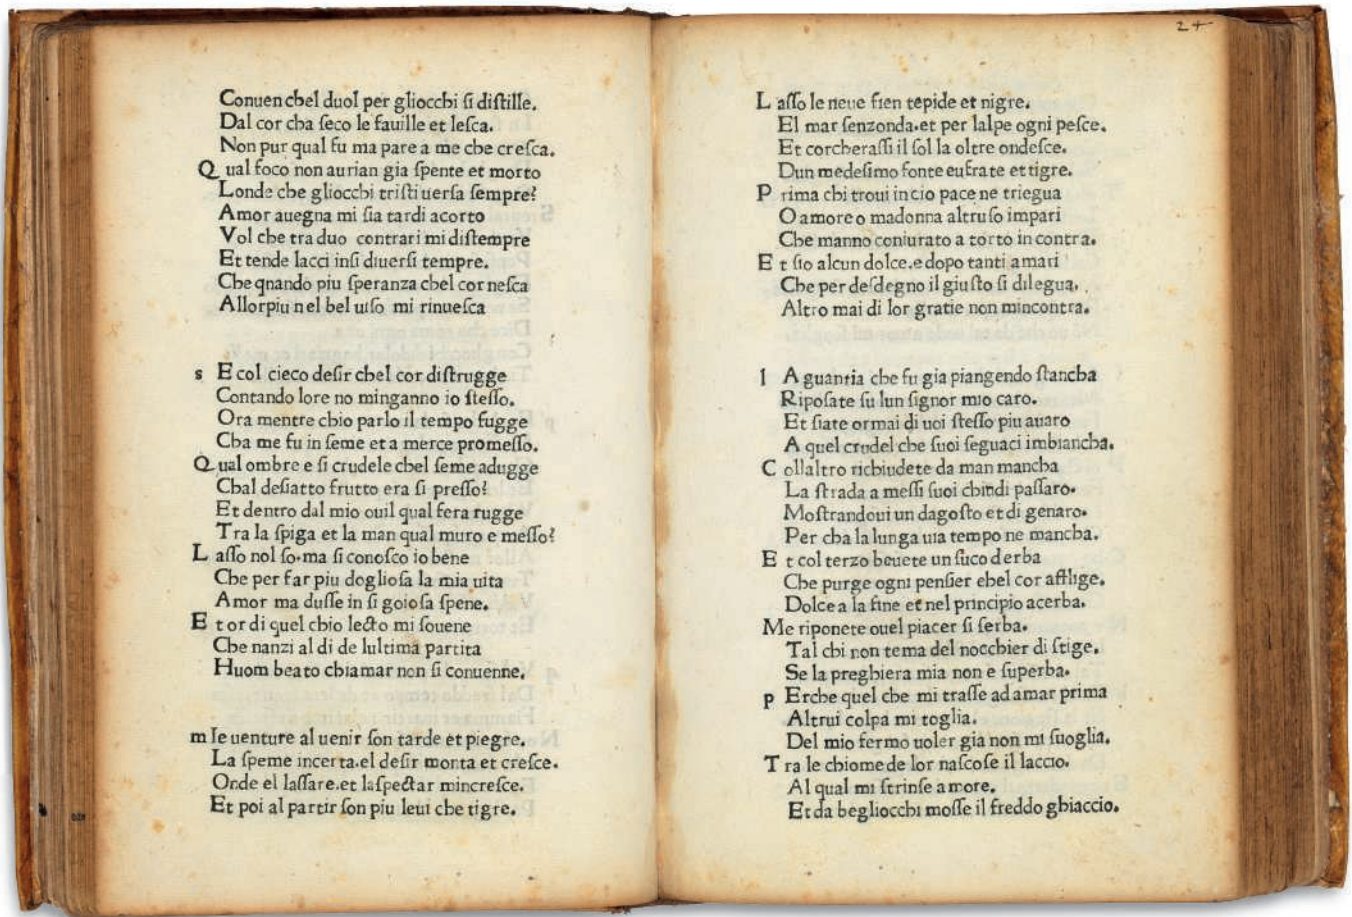 Conuen chel duol per gliocchi si distille.
Dal cor cha seco le fauille et lesca.
Non pur qual fu ma pare a me che cresca.
Q ual foco non aurian gia spente et morto
Londe che gliocchi tristi uersa sempre?
Amor auegna mi sia tardi acorto
Vol che tra duo contrari mi distempre
Et tende lacci insi diuersi tempre.
Che qnando piu speranza chel cor nesca
Allorpiu nel bel uiso mi rinuesca
s E col cieco desir chel cor distrugge
Contando lore no minganno io stesso.
Ora mentre chio parlo il tempo fugge
Cha me fu in seme et a merce promesso.
Q ual ombre e si crudele chel seme adugge
Chal desiatto frutto era si presso?
Et dentro dal mio ouil qual fera rugge
Tra la spiga et la man qual muro e messo?
L asso nol so.ma si conosco io bene
Che per far piu dogliosa la mia uita
Amor ma dusse in si goiosa spene.
E t or di quel chio lecto mi souene
Che nanzi al di de lultima partita
Huom beato chiamar non si conuenne.
m Ie uenture al uenir son tarde et piegre.
La speme incerta.el desir monta et cresce.
Onde el lassare.et laspectar mincresce.
Et poi al partir son piu leui che tigre.
24
L asso le neue fien tepide et nigre.
El mar senzonda.et per lalpe ogni pesce.
Et corcherassi il sol la oltre ondesce.
Dun medesimo fonte eufrate et tigre.
P rima chi troui in cio pace ne triegua
O amore o madonna altruso impari
Che manno coniurato a torto in contra.
E t sio alcun dolce.e dopo tanti amari
Che per desdegno il giusto si dilegua.
Altro mai di lor gratie non mincontra.
l A guantia che fu gia piangendo stancha
Riposate su lun signor mio caro.
Et siate ormai di uoi stesso piu auaro
A quel crudel che suoi seguaci imbiancha.
C ollaltro richiudete da man mancha
La strada a messi suoi chindi passaro.
Mostrandoui un dagosto et di genaro.
Per cha la lunga uia tempo ne mancha.
E t col terzo beuete un suco derba
Che purge ogni pensier chel cor afflige.
Dolce a la fine et nel principio acerba.
Me riponete ouel piacer si serba.
Tal chi non tema del nocchier di stige.
Se la preghiera mia non e superba.
p Erche quel che mi trasse ad amar prima
Altrui colpa mi toglia.
Del mio fermo uoler gia non mi suoglia.
T ra le chiome de lor nascose il laccio.
Al qual mi strinse amore.
Et da begliocchi mosse il freddo ghiaccio.